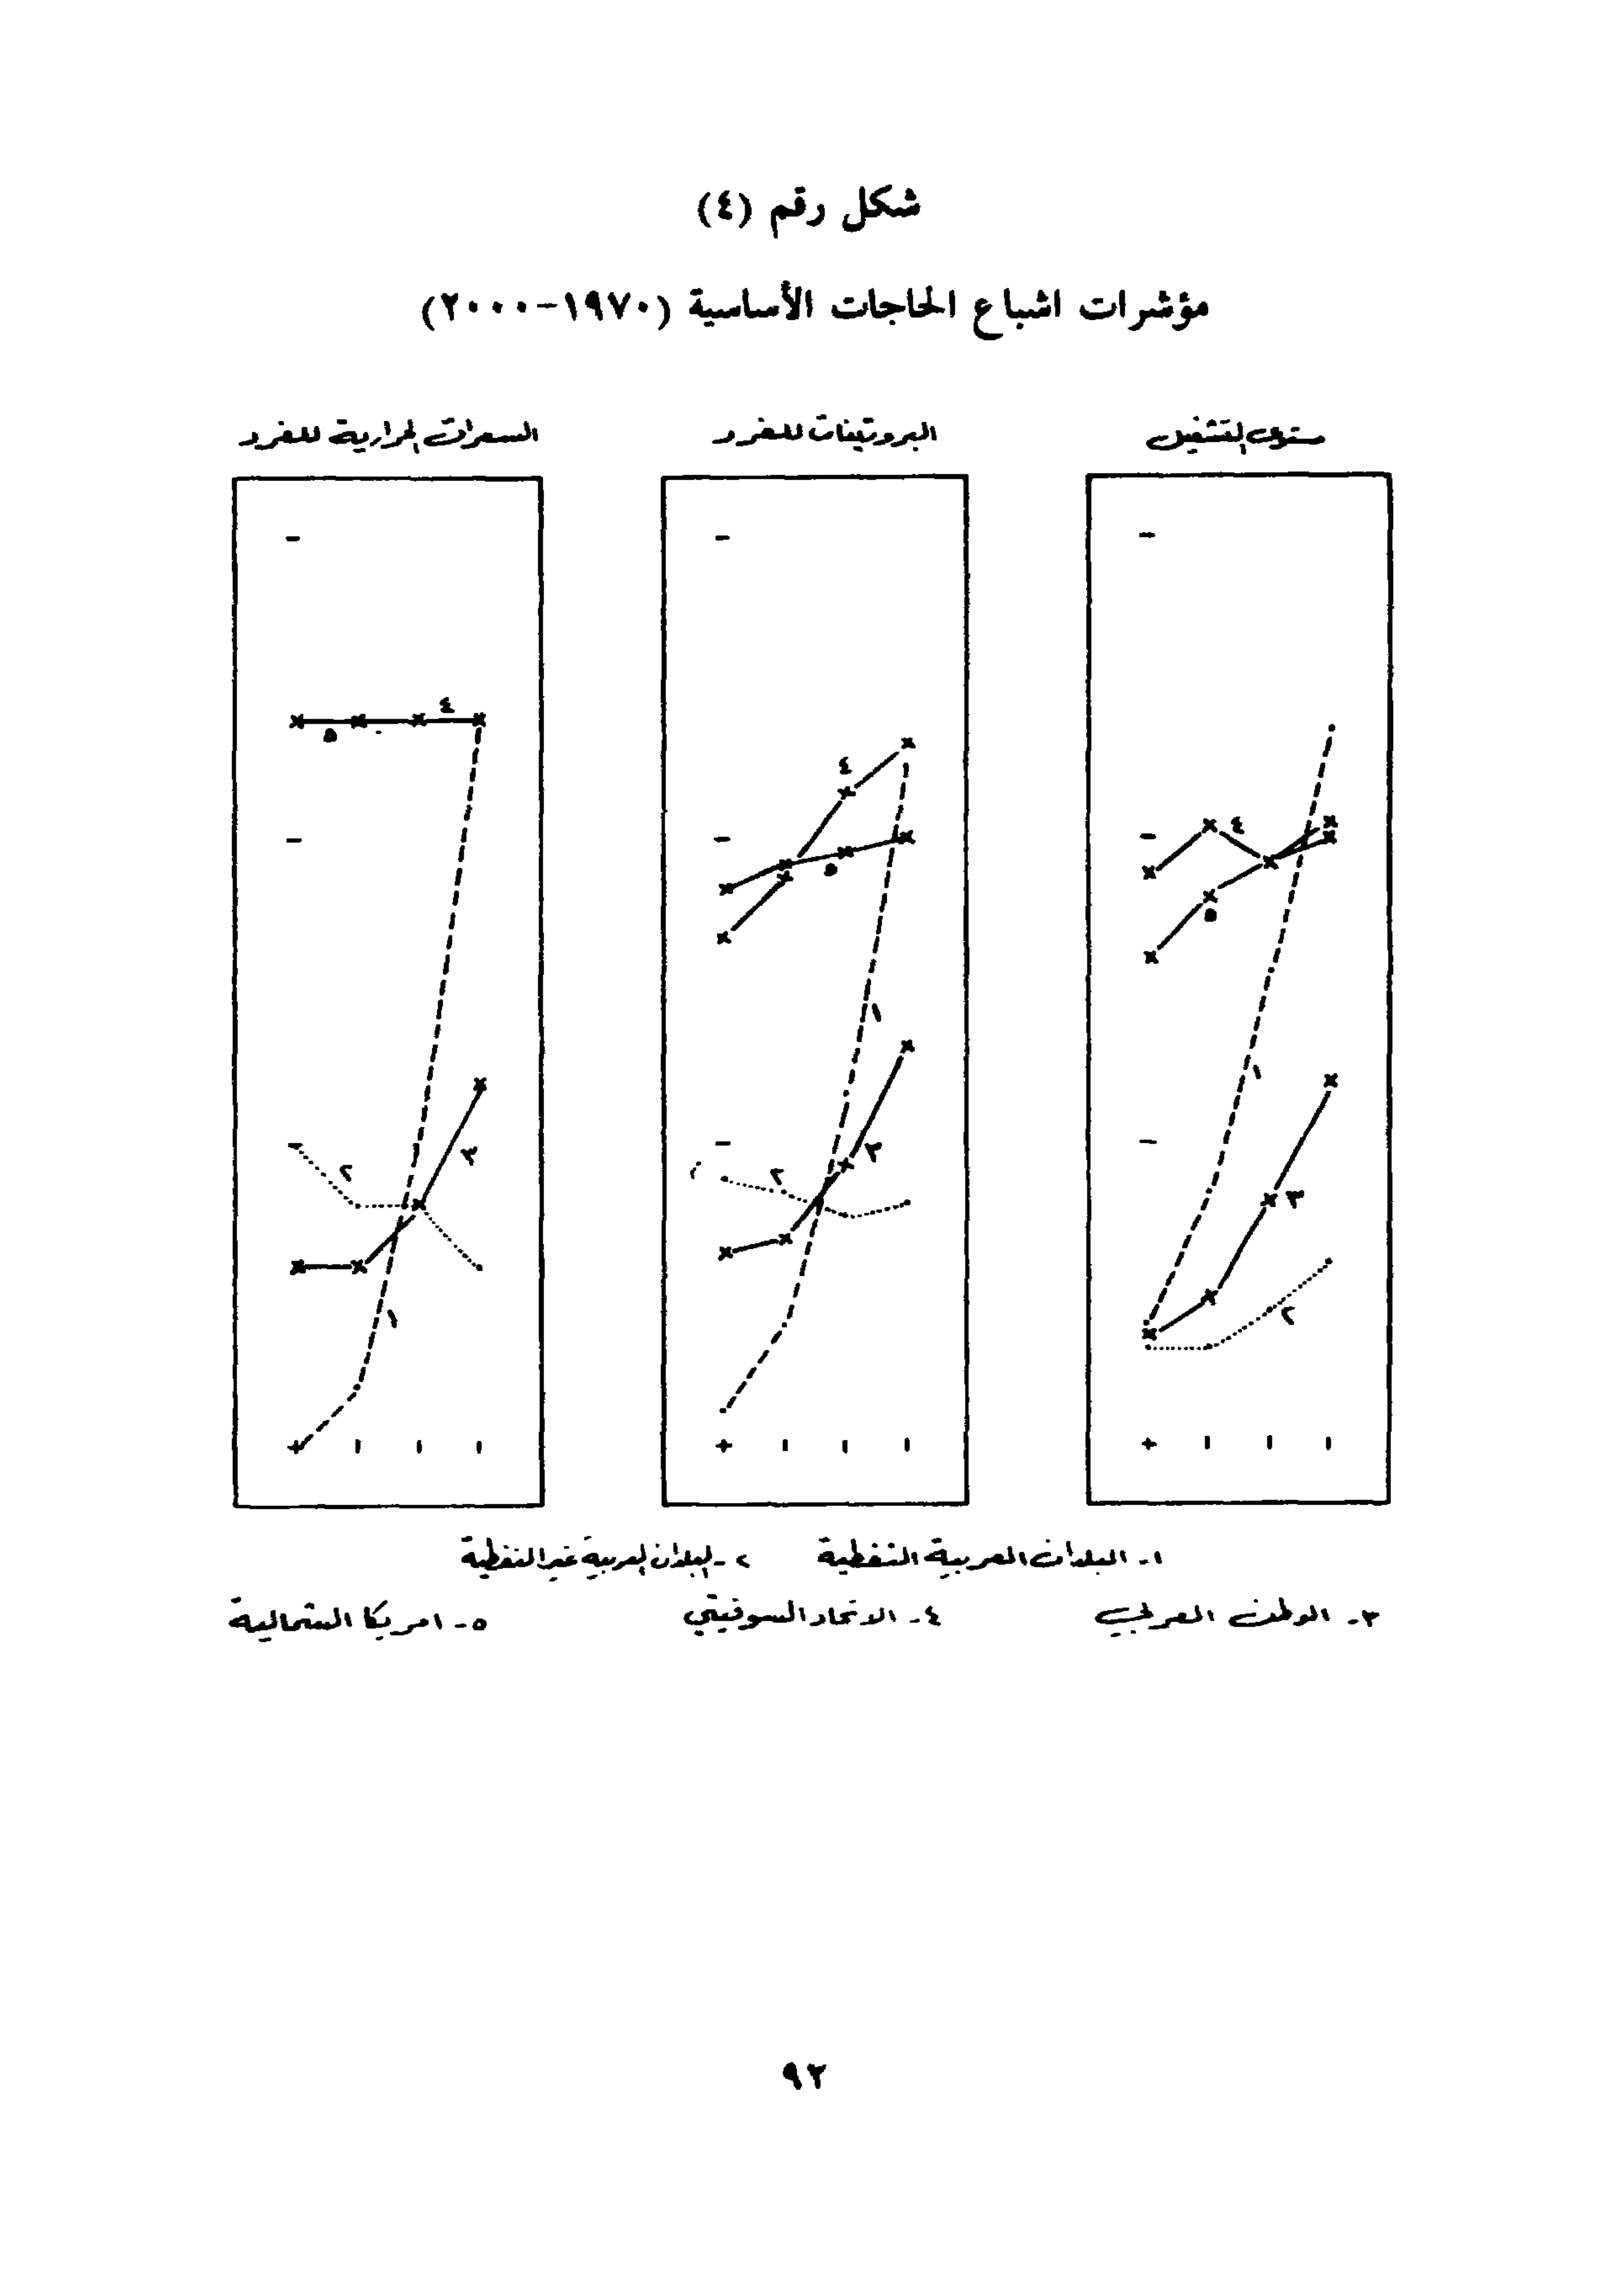 شكل رقم (٤)
مؤشرات اشباع الحاجات الأساسية (١٩٧٠-٢٠٠٠)
مستوى التشغيل
البروتينات للفرد
السعرات الحرارية للفرد
٤
٥
١
٣
٢
٤
٥
١
٣
٢
٤
٥
٢
٣
١
١- البلدان العربية النفطية ٢- البلدان العربية غير النفطية
٣- الوطن العربي ٤- الاتحاد السوفيتي ٥- امريكا الشمالية
٩٢